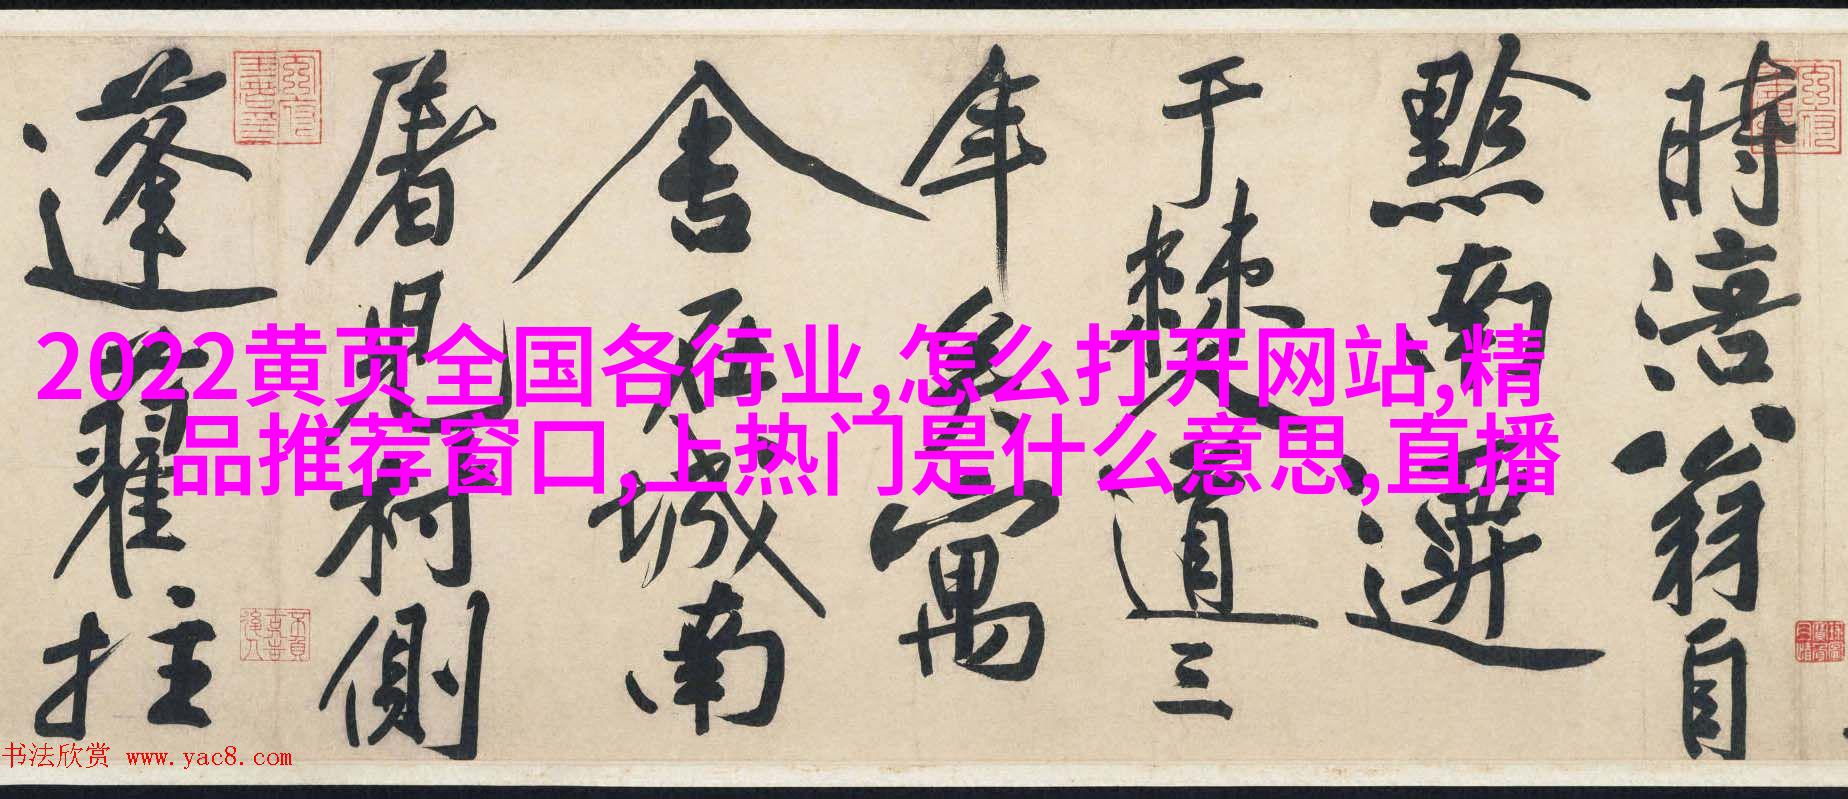 時涪翁自
黔南遷
于棘道三
年矣寓
舍在城南
屠兒村側
蓬藋拄
2022黄页全国各行业,怎么打开网站,精
品推荐窗口,上热门是什么意思,直播
书法欣赏 www.yac8.com